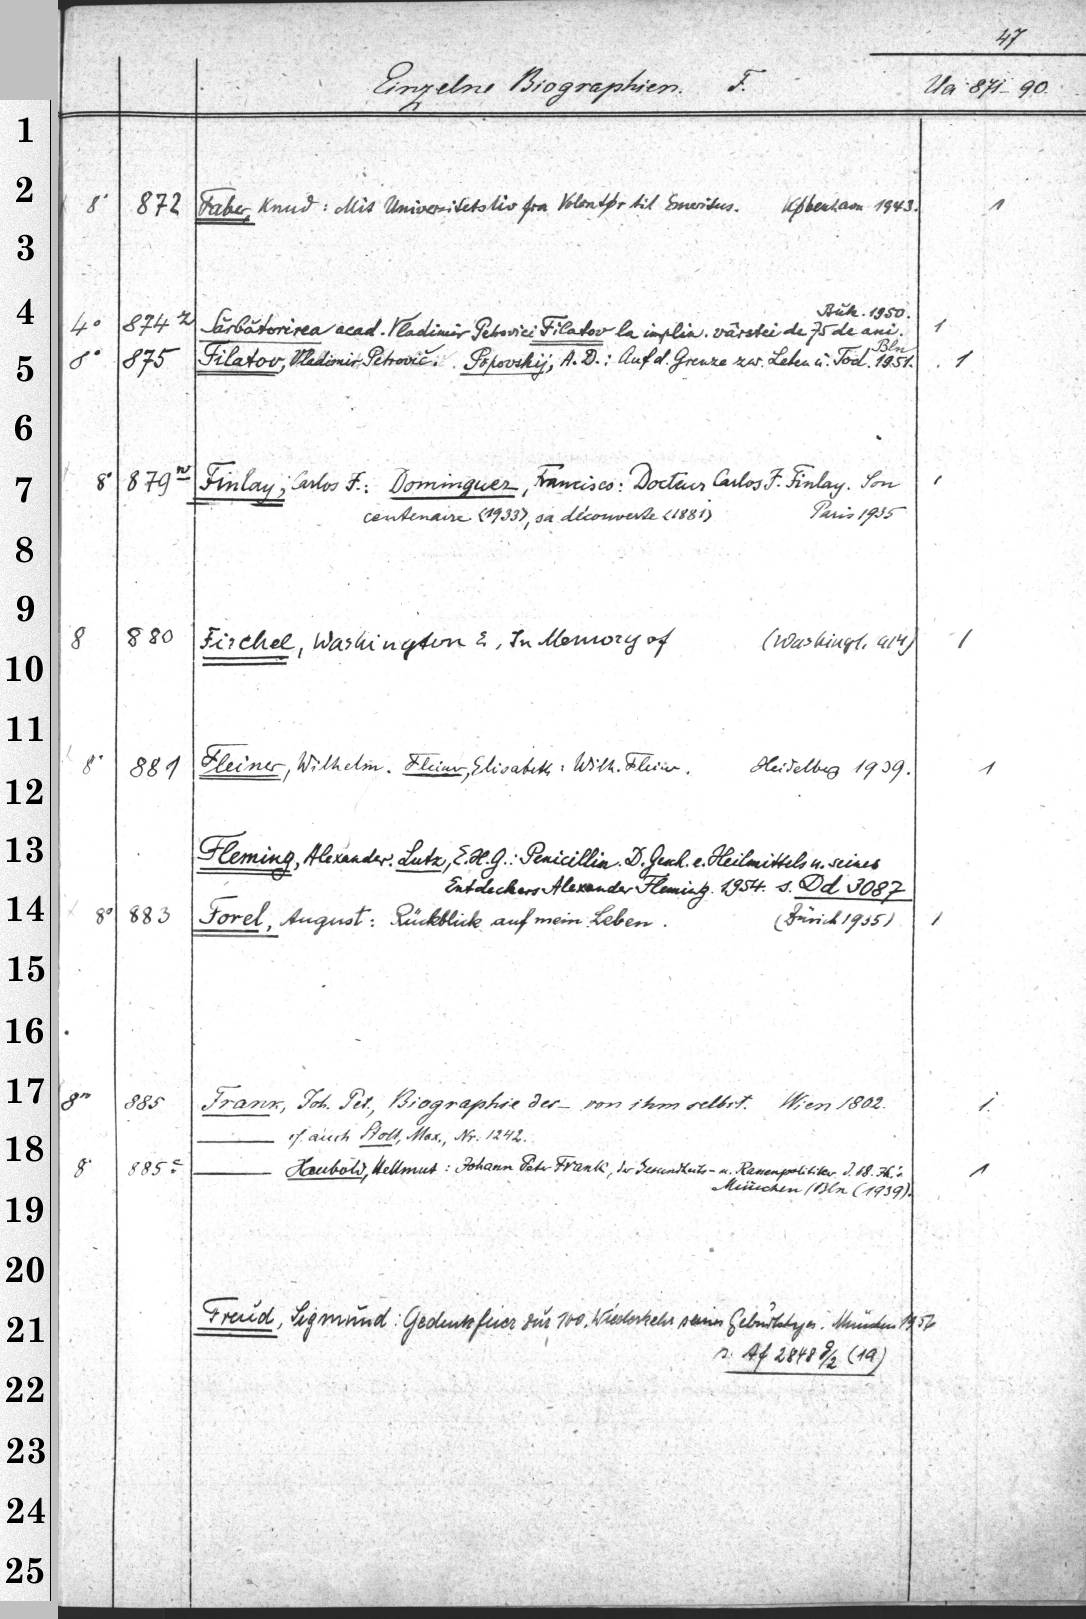 47
Einzelne Biographien. F. Ua 871-90.
1
2
8° 872 Faber, Knud: Mit Universitetsliv fra Volontør til Emeritus. København 1943. 1
3
Buk. 1950.
4
4° 874 z Sărbătorirea acad. Vladimir Petrovici Filatov la implin. vârstei de 75 de ani. 1
Bln
5
8° 875 Filatov, Vladimir Petrovič. Popovskij, A. D.: Auf d. Grenze zw. Leben u. Tod. 1951. 1
6
7
8° 879 w Finlay, Carlos F.: Dominguez, Francisco: Docteur Carlos F. Finlay. Son 1
centenaire (1933), sa découverte (1881) Paris 1935
8
9
8 880 Fischel, Washington E, In Memory of (Washingt. 1914) 1
10
11
8° 881 Fleiner, Wilhelm. Fleiner, Elisabeth: Wilh. Fleiner. Heidelberg 1939. 1
12
13
Fleming, Alexander. Lutz, E. H. G.: Penicillin. D. Gesch. e. Heilmittels u. seines
Entdeckers Alexander Fleming. 1954. s. Dd 3087
14
8° 883 Forel, August: Rückblick auf mein Leben. (Zürich 1935) 1
15
16
17
8° 885 Frank, Joh. Pet., Biographie des — von ihm selbst. Wien 1802. 1.
— cf auch Stoll, Max., Nr. 1242.
18
8° 885 c — Haubold, Hellmut: Johann Peter Frank, der Gesundheits- u. Rassenpolitiker d. 18. Jh.s
München/Bln (1939). 1
19
20
21
Freud, Sigmund: Gedenkfeier zur 100. Wiederkehr seines Geburtstages. München 1956
s. Af 2848 9/2 (19)
22
23
24
25